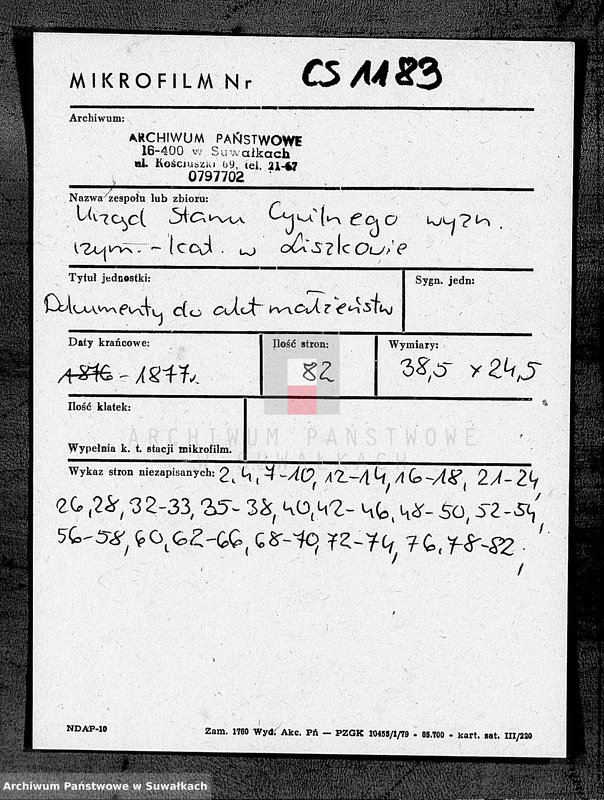 MIKROFILM Nr CS 1183
Archiwum:
ARCHIWUM PAŃSTWOWE
16-400 w Suwałkach
ul. Kościuszki 69, tel. 21-67
0797702
Nazwa zespołu lub zbioru:
Urząd Stanu Cywilnego wyzn.
rzym.-kat. w Liszkowie
Tytuł jednostki:
Sygn. jedn:
Dokumenty do akt małżeństw
Daty krańcowe:
Ilość stron:
Wymiary:
1876 - 1877r.
82
38,5 x 24,5
Ilość klatek:
ARCHIWUM PAŃSTWOWE
W SUWAŁKACH
Wypełnia k. t. stacji mikrofilm.
Wykaz stron niezapisanych: 2,4,7-10,12-14,16-18, 21-24,
26,28, 32-33, 35-38,40,42-46,48-50, 52-54,
56-58,60,62-66, 68-70, 72-74, 76,78-82,
NDAP-10
Zam. 1760 Wyd. Akc. Pń — PZGK 10455/1/79 - 85.700 - kart. sat. III/220
Archiwum Państwowe w Suwałkach